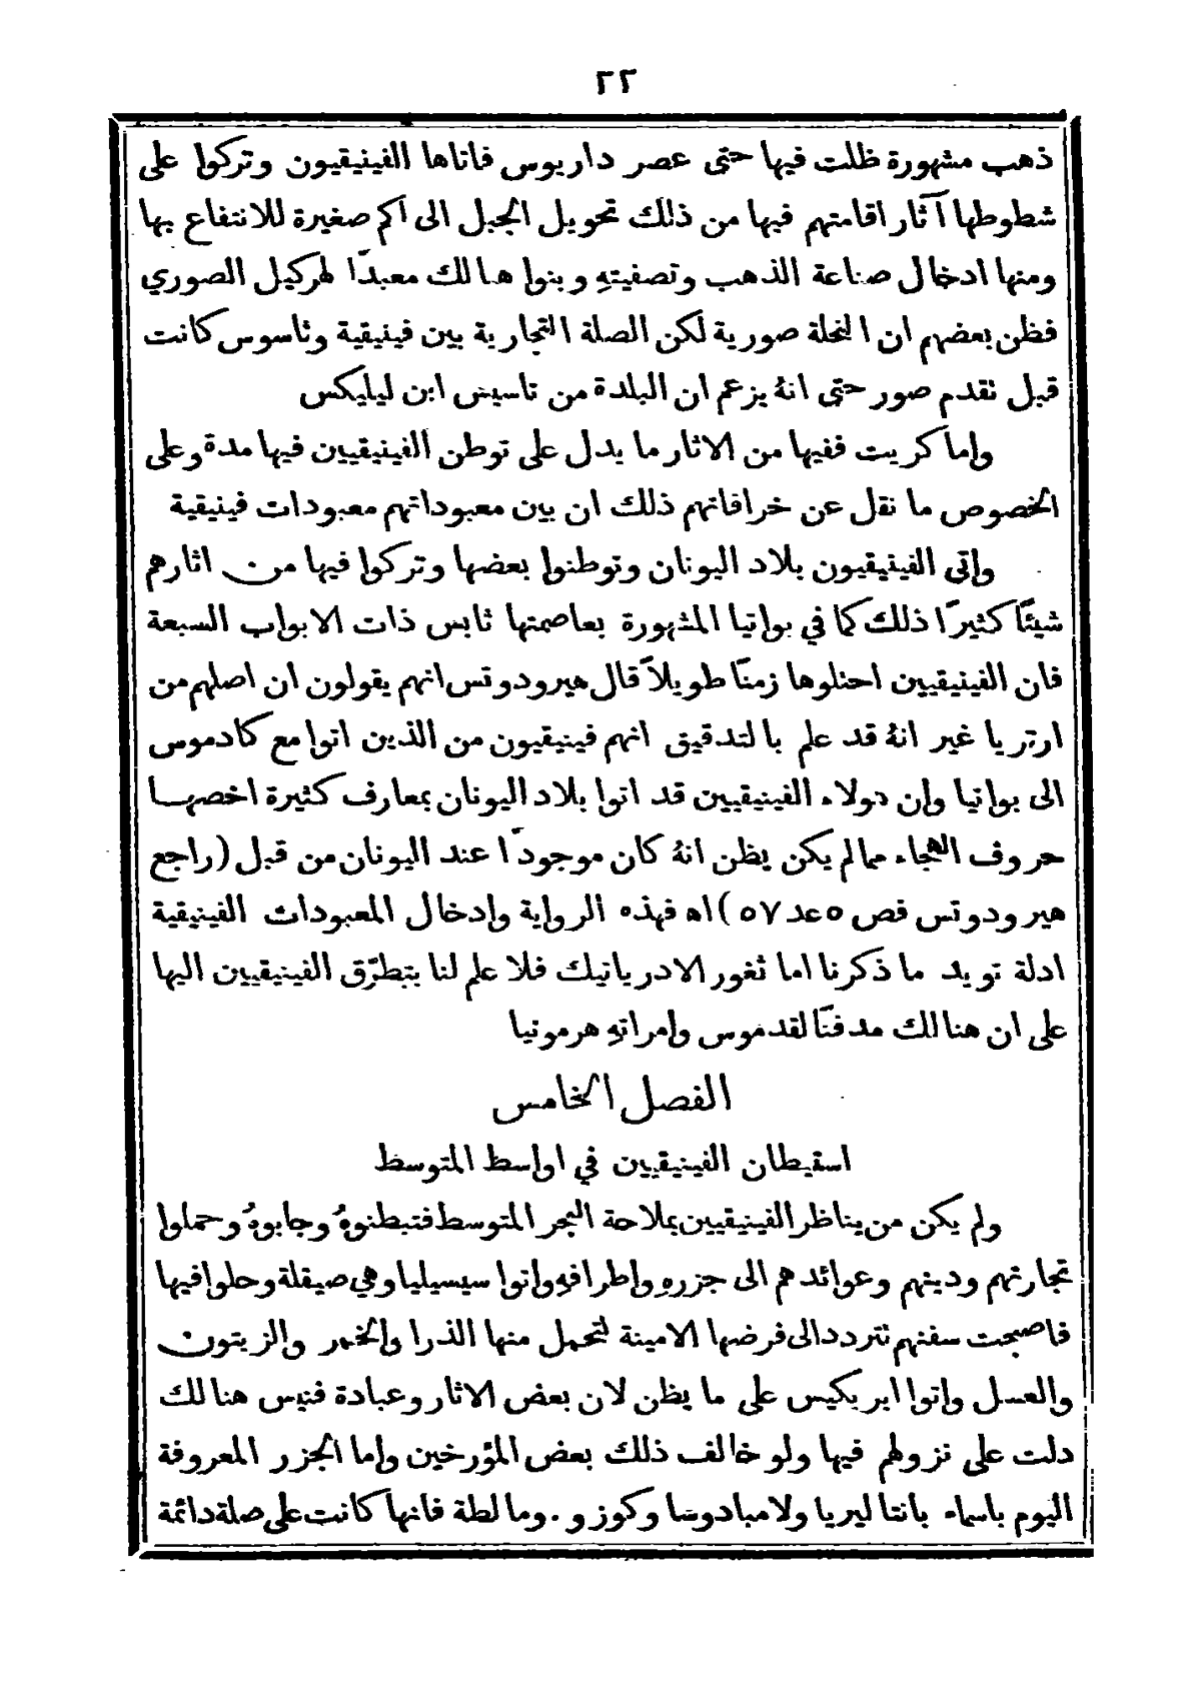 ٢٢
ذهب مشهورة ظلت فيها حتى عصر داريوس فاتاها الفينيقيون وتركوا على
شطوطها آثار اقامتهم فيها من ذلك تحويل الجبل الى اكم صغيرة للانتفاع بها
ومنها ادخال صناعة الذهب وتصفيتهِ وبنوا هنالك معبدًا لهركيل الصوري
فظن بعضهم ان النحلة صورية لكن الصلة التجارية بين فينيقية وثاسوس كانت
قبل تقدم صور حتى انهُ يزعم ان البلدة من تاسيس ابن ليليكس
واما كريت ففيها من الاثار ما يدل على توطن الفينيقيين فيها مدة وعلى
الخصوص ما نقل عن خرافاتهم ذلك ان بين معبوداتهم معبودات فينيقية
واتى الفينيقيون بلاد اليونان وتوطنوا بعضها وتركوا فيها من اثارهم
شيئًا كثيرًا ذلك كما في بواتيا المشهورة بعاصمتها ثابس ذات الابواب السبعة
فان الفينيقيين احتلوها زمنًا طويلاً قال هيرودوتس انهم يقولون ان اصلهم من
ارتريا غير انهُ قد علم بالتدقيق انهم فينيقيون من الذين اتوا مع كادموس
الى بواتيا وان هولاء الفينيقيين قد اتوا بلاد اليونان بمعارف كثيرة اخصها
حروف الهجاء مما لم يكن يظن انهُ كان موجودًا عند اليونان من قبل (راجع
هيرودوتس فص ٥ عد ٥٧) اه فهذه الرواية وإدخال المعبودات الفينيقية
ادلة تويد ما ذكرنا اما ثغور الادرياتيك فلا علم لنا بتطرّق الفينيقيين اليها
على ان هنالك مدفنًا لقدموس وامراتهِ هرمونيا
الفصل الخامس
استيطان الفينيقيين في اواسط المتوسط
ولم يكن من يناظر الفينيقيين بملاحة البحر المتوسط فتبطنوهُ وجابوهُ وحملوا
تجارتهم ودينهم وعوائدهم الى جزرهِ واطرافهِ واتوا سيسيليا وهي صيقلة وحلوا فيها
فاصبحت سفنهم تتردد الى فرضها الامينة لتحمل منها الذرا والخمر والزيتون
والعسل واتوا ايريكيس على ما يظن لان بعض الاثار وعبادة فنيس هنالك
دلت على نزولهم فيها ولو خالف ذلك بعض المؤرخين واما الجزر المعروفة
اليوم باسماء بانتاليريا ولامبادوسا وكوزو. ومالطة فانها كانت على صلة دائمة